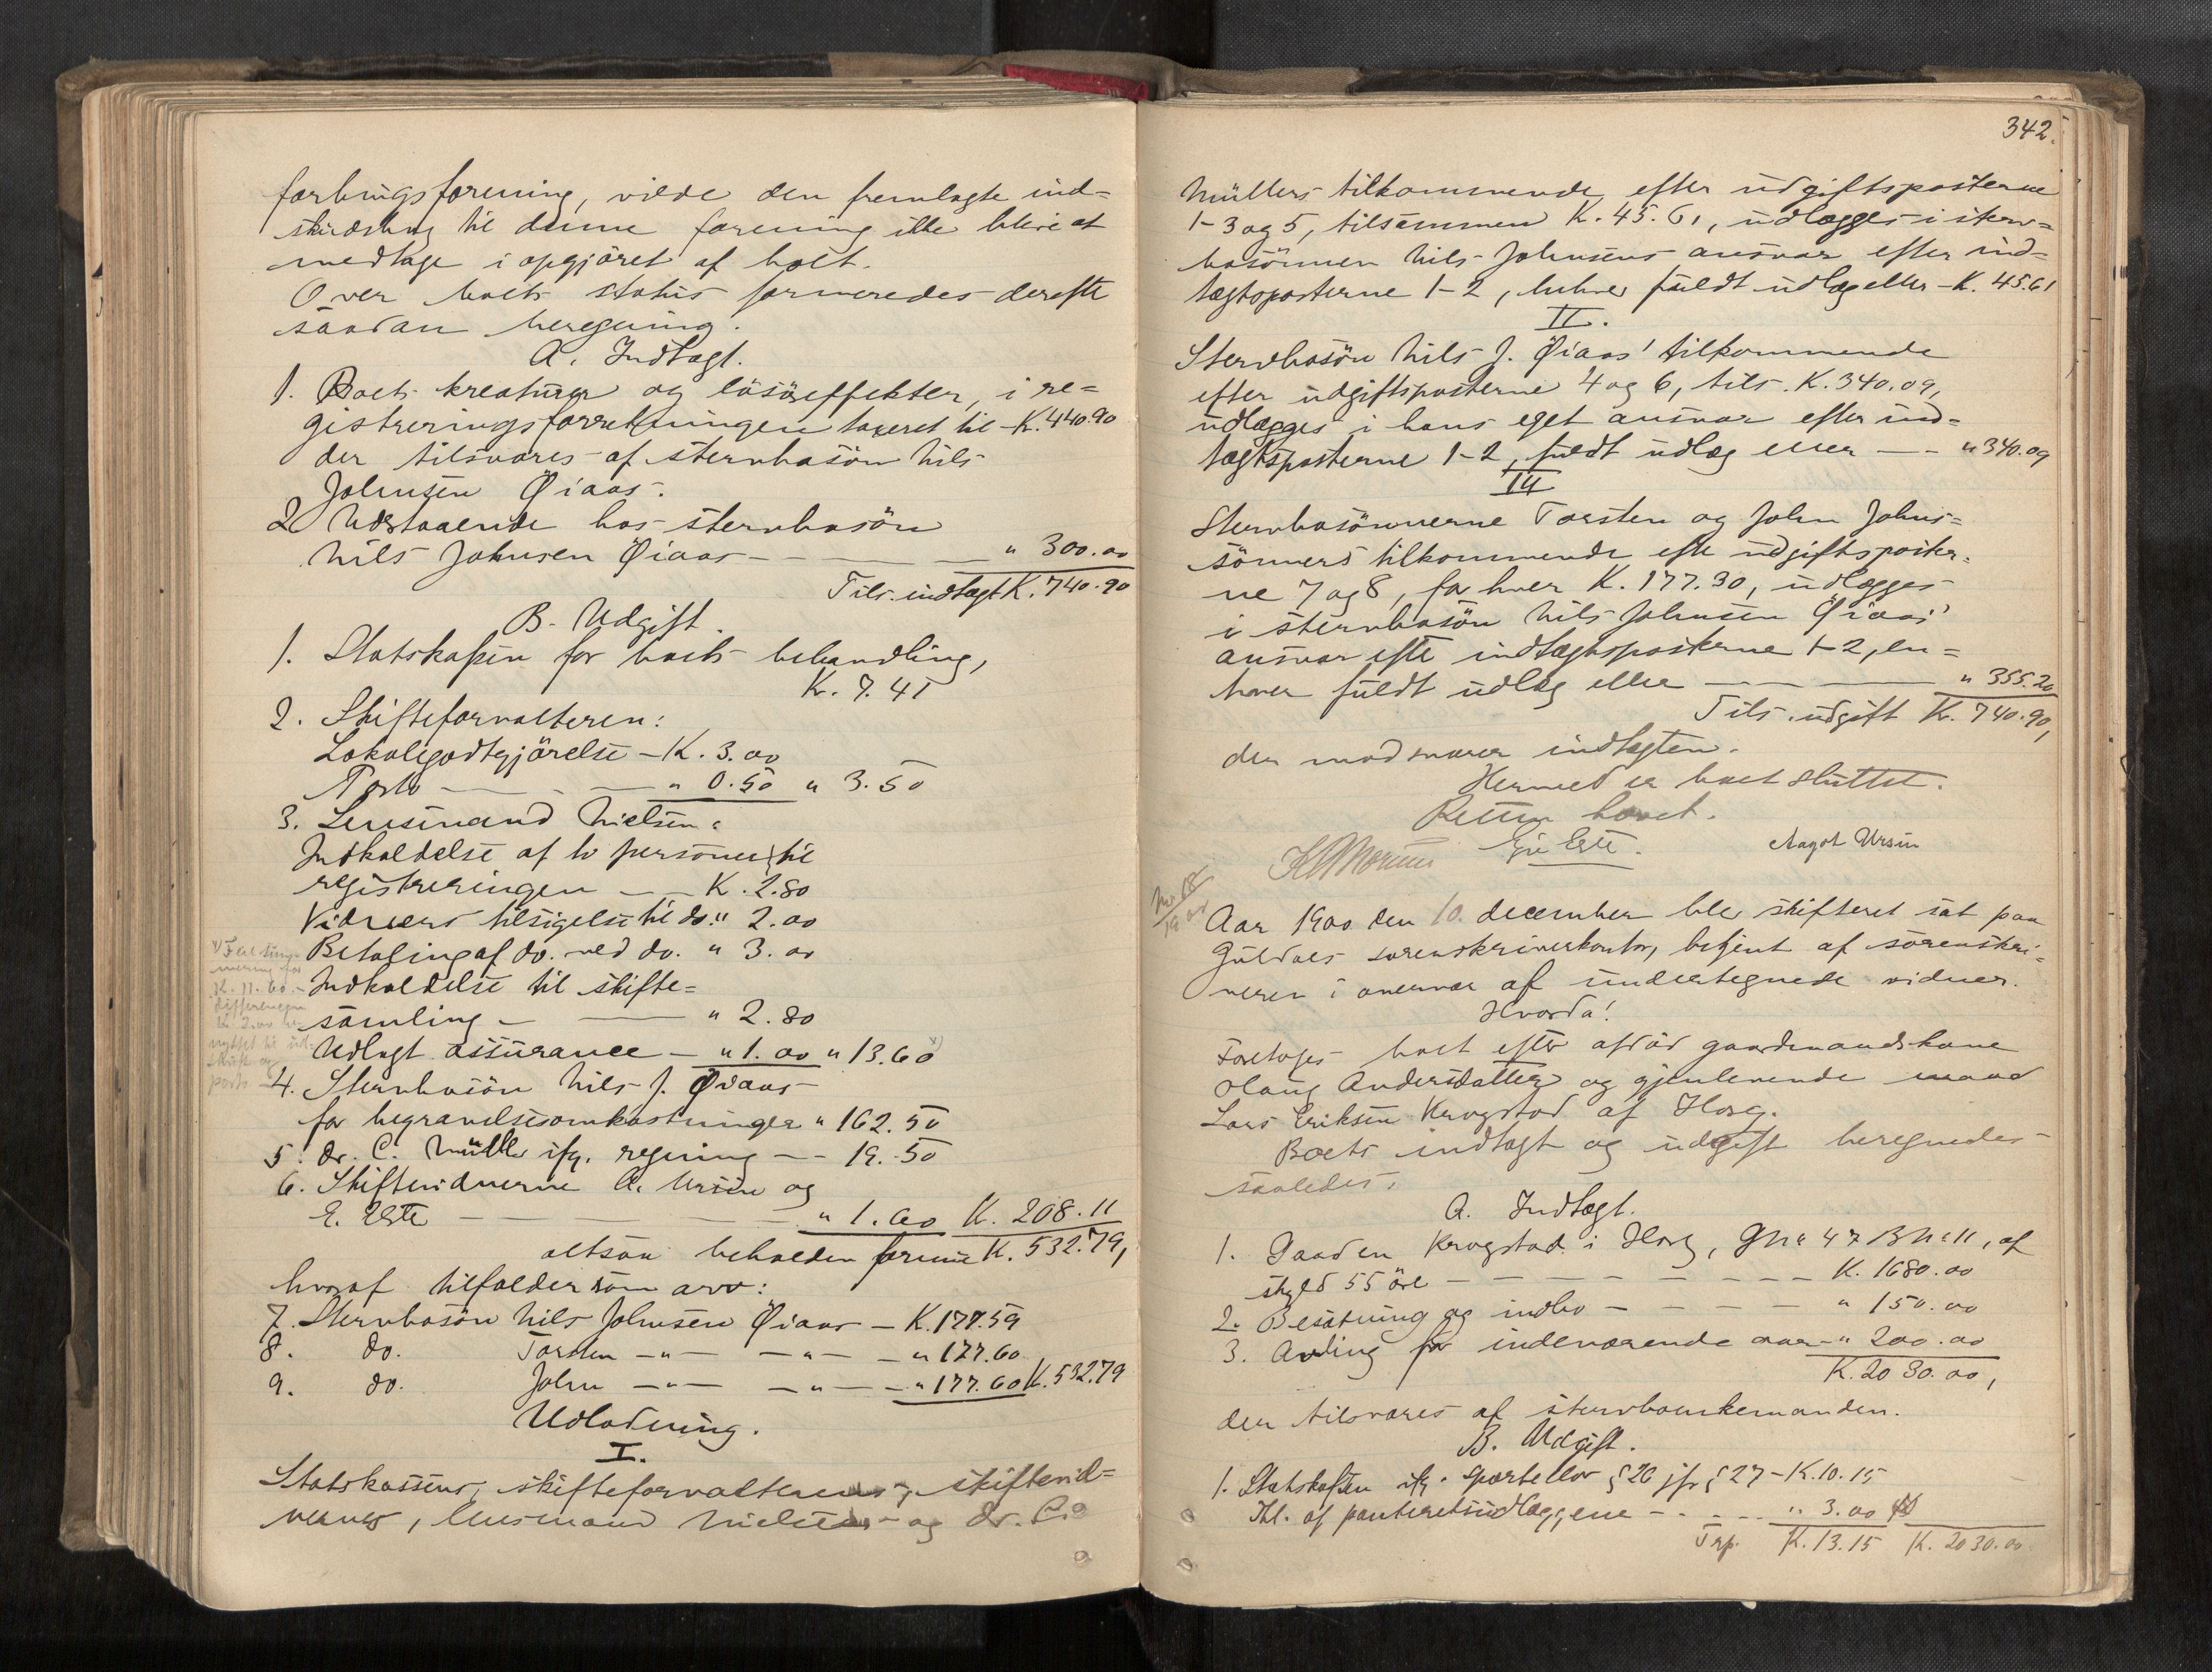 farlingsforening, vilde den fremlagte ind=
skudsbog til denne forening ikke blive at
medtage i opgjöret af boet.
Over boets status formeredes derefter
saadan beregning.
A. Indtægt.
1. Boets kreaturer og lösöreffekter, i re=
gistreringsforretningen taxeret til - K. 440.90
der tilsvares af stervbosön Nils
Johnsen Øiaas.
2 Udstaaende hos stervbosön
Nils Johnsen Øiaas - — — " 300.00
Tils. indtægt K. 740.90
B. Udgift.
1. Statskassen for boets behandling,
Kr. 7.41
2. Skifteforvalteren:
Lokalegodtgjörelse - K. 3.00
Porto — - — " 0.50 " 3.50
3. Lensmand Nielsen:
Indkaldelse af to personer til
registreringen — - K. 2.80
Vidners tilsigelse til do. " 2.00
Betaling af do. ved do. " 3.00
Indkaldelse til skifte=
samling - — " 2.80
Udlagt assurance - " 1.00 " 13.60 x)
K. 11.60 -
differencen
porto
4. Stervbosön Nils J. Øiaas
for begravelsesomkostninger " 162.50
5. dr. C. Müller ifg. regning -- 19.50
6. Skiftevidnerne A. Ursin og
E. Elste — — — " 1.60 K. 208.11
altsaa beholden formue K. 532.79,
hvoraf tilfalder som arv:
7. Stervbosön Nils Johnsen Øiaas - K. 177.59
8. do. Torsten -"- -"- - " 177.60
9. do. John -"- -"- - " 177.60 K. 532.79
Udlodning.
I.
Statskassens, skifteforvalterens, skiftevid=
nernes, lensmand Nielsens og dr. C.
342.
Müllers tilkommende efter udgiftsposterne
1-3 og 5, tilsammen K. 45.61, udlægges i sterv=
bosönnen Nils Johnsens ansvar efter ind=
tægtsposterne 1-2, enhver fuldt udlæg eller - K. 45.61
II.
Stervbosön Nils J. Øiaas' tilkommende
efter udgiftsposterne 4 og 6, tils. K. 340.09,
udlægges i hans eget ansvar efter ind=
tægtsposterne 1-2, fuldt udlæg eller — - " 340.09
III
Stervbosönnerne Torsten og John Johns=
sönners tilkommende efter udgiftsposter=
ne 7 og 8, for hver K. 177.30, udlægges
i stervbosön Nils Johnsen Øiaas'
ansvar efter indtægtsposterne 1-2, en=
hver fuldt udlæg eller — — " 355.20
Tils. udgift K. 740.90,
der modsvarer indtægten.
Hermed er boet sluttet.
Retten hævet.
E. Elste. Aagot Ursin
Aar 1900 den 10. december blev skifteret sat paa
Guldals sorenskriverkontor, betjent af sorenskri=
veren i overvær af undertegnede vidner.
Hvorda!
Foretoges boet efter afdöd gaardmandskone
Olaug Andersdatter og gjenlevende mand
Lars Eriksen Krogstad af Horg.
Boets indtægt og udgift beregnedes
saaledes:
A. Indtægt.
1. Gaarden Krogstad i Horg, Gn. 47 Bn. 11, af
skyld 55 öre - - - - - - - - K. 1680.00
2. Besætning og indbo - - - - - " 150.00
3. Avling for indeværende aar - " 200.00
K. 2030.00,
der tilsvares af stervboenkemanden.
B. Udgift.
1. Statskassen ifg. sportellov § 26 jfr § 27 - K. 10.15
Thl. af panteretsudlæggene - - - - " 3.00
Trp. K. 13.15 K. 2030.00